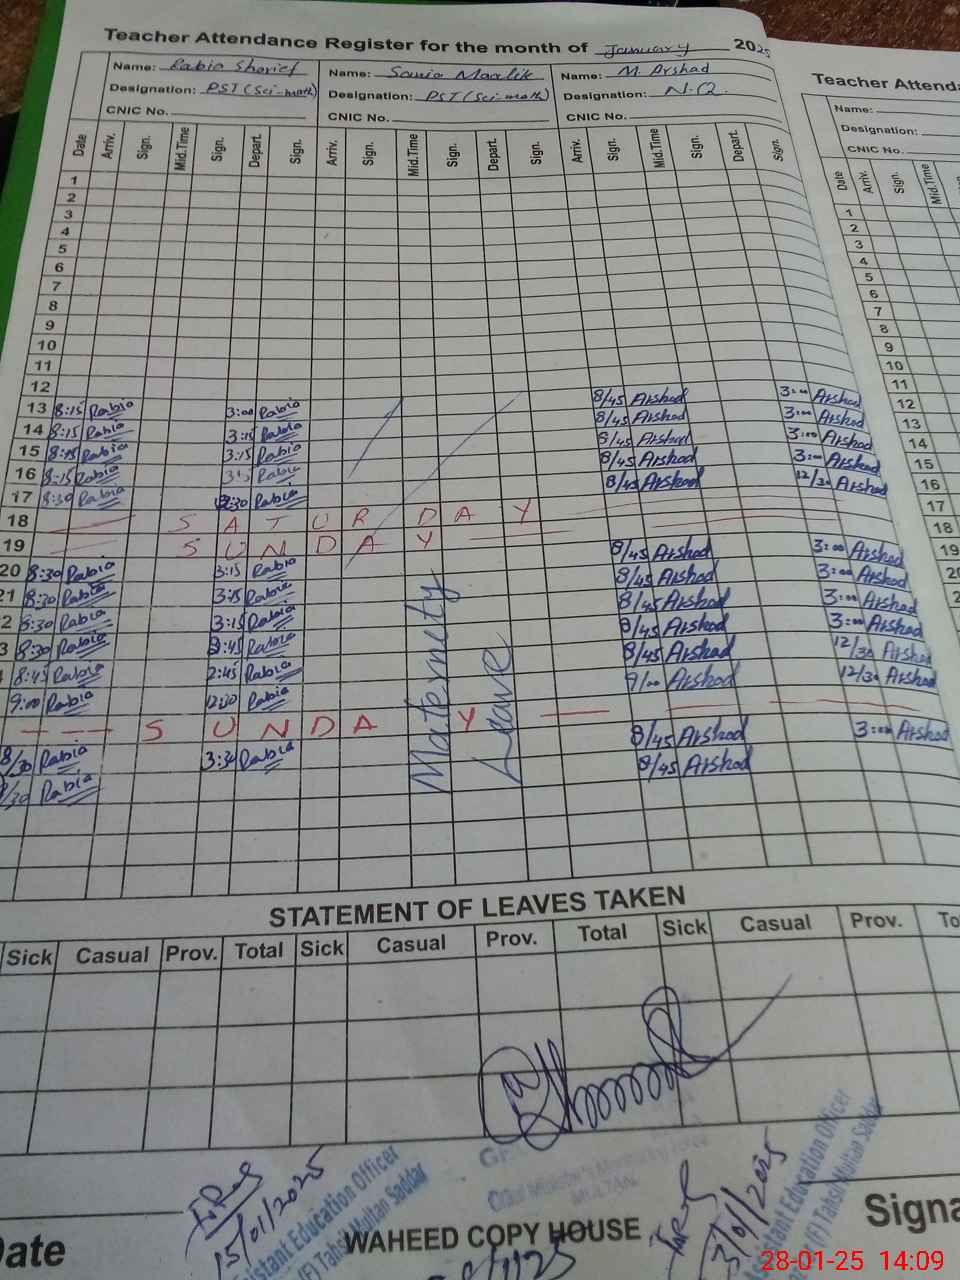 Teacher Attendance Register for the month of January 2025
Name: Rabia Sharief Name: Sonia Maalik Name: M. Arshad
Designation: PST (Sci-math) Designation: PST (Sci-math) Designation: N.Q.
CNIC No. CNIC No. CNIC No.
Date Arriv. Sign. Mid.Time Sign. Depart. Sign. Arriv. Sign. Mid.Time Sign. Depart. Sign. Arriv. Sign. Mid.Time Sign. Depart. Sign.
1
2
3
4
5
6
7
8
9
10
11
12
13 8:15 Rabia 3:00 Rabia 8/45 Arshad 3:00 Arshad
14 8:15 Rabia 3:15 Rabia 8/45 Arshad 3:00 Arshad
15 8:15 Rabia 3:15 Rabia 8/45 Arshad 3:00 Arshad
16 8:15 Rabia Rabia 8/45 Arshad 3:00 Arshad
17 8:30 Rabia 12:30 Rabia 8/45 Arshad 12/30 Arshad
18 SATURDAY
19 SUNDAY
20 8:30 Rabia 3:15 Rabia 8/45 Arshad 3:00 Arshad
21 8:30 Rabia 3:15 Rabia 8/45 Arshad 3:00 Arshad
2 8:30 Rabia 3:15 Rabia 8/45 Arshad 3:00 Arshad
3 8:30 Rabia Rabia 8/45 Arshad 3:00 Arshad
8:45 Rabia 2:45 Rabia 8/45 Arshad 12/30 Arshad
9:00 Rabia Rabia 9/00 Arshad 12/30 Arshad
SUNDAY
8/30 Rabia 3:30 Rabia 8/45 Arshad 3:00 Arshad
/30 Rabia 8/45 Arshad
Maternety
Leave
STATEMENT OF LEAVES TAKEN
Sick Casual Prov. Total Sick Casual Prov. Total Sick Casual Prov. To
15/01/2025
Assistant Education Officer
(F) Tahsil Multan Saddar
Chief Minister's Monitoring Force
MULTAN
/01/2025
Assistant Education Officer
(F) Tahsil Multan Saddar
Date WAHEED COPY HOUSE Signa
Teacher Attenda
Name:
Designation:
CNIC No.
Date Arriv. Sign. Mid.Time
1
2
3
4
5
6
7
8
9
10
11
12
13
14
15
16
17
18
19
20
2
28-01-25 14:09